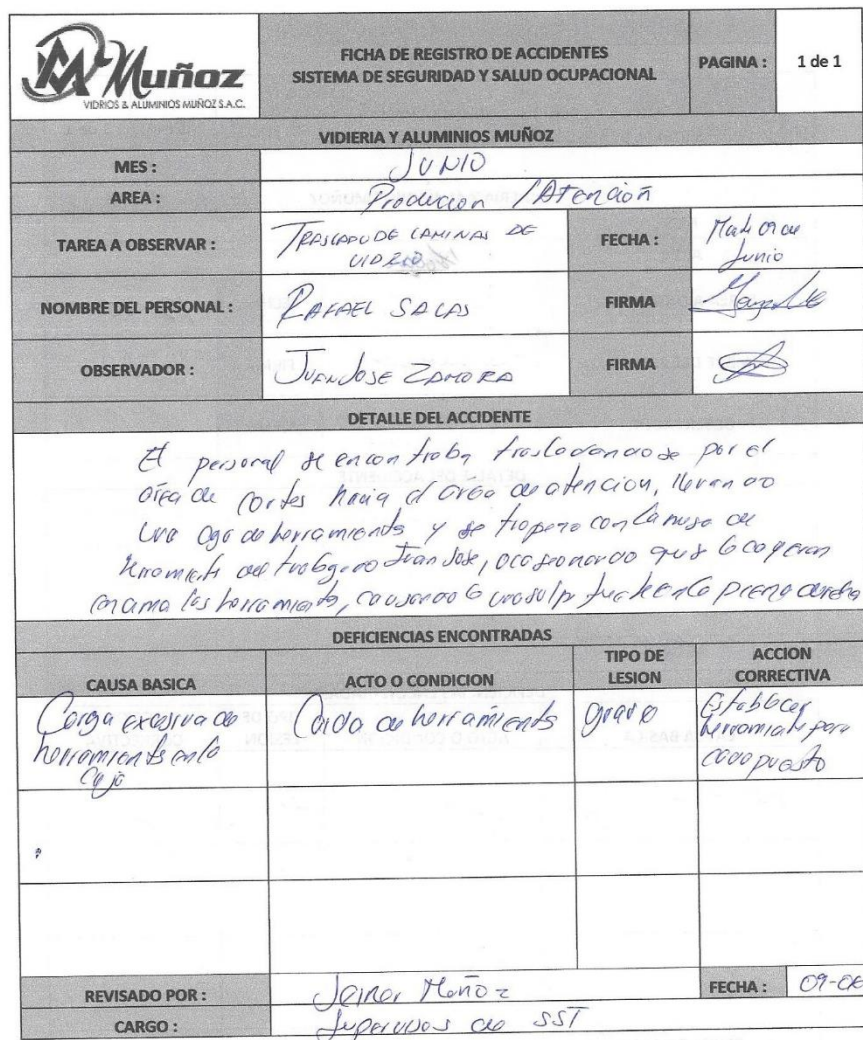 Muñoz
VIDRIOS & ALUMINIOS MUÑOZ S.A.C.
FICHA DE REGISTRO DE ACCIDENTES
SISTEMA DE SEGURIDAD Y SALUD OCUPACIONAL
PAGINA : 1 de 1
VIDIERIA Y ALUMINIOS MUÑOZ
MES : JUNIO
AREA : Produccion / Atención
TAREA A OBSERVAR : TRASLADO DE LAMINAS DE
VIDRIO
FECHA :
Junio
NOMBRE DEL PERSONAL : RAFAEL SALAS
FIRMA
OBSERVADOR : JUAN JOSE ZAMORA
FIRMA
DETALLE DEL ACCIDENTE
El personal se encontraba trasladandose por el
área de cortes hacia el área de atencion, llevando
una caja de herramientas y se tropezo con la mesa de
herramienta del trabajador Juan Jose, ocasionando que le cayeran
encima las herramientas, causando la pierna derecha
DEFICIENCIAS ENCONTRADAS
CAUSA BASICA
ACTO O CONDICION
TIPO DE
LESION
ACCION
CORRECTIVA
Carga excesiva de
herramientas en la
caja
Caida de herramientas
grave
Establecer
herramienta para
cada puesto
REVISADO POR : Muñoz
FECHA : 09-06
CARGO : Supervisor de SST